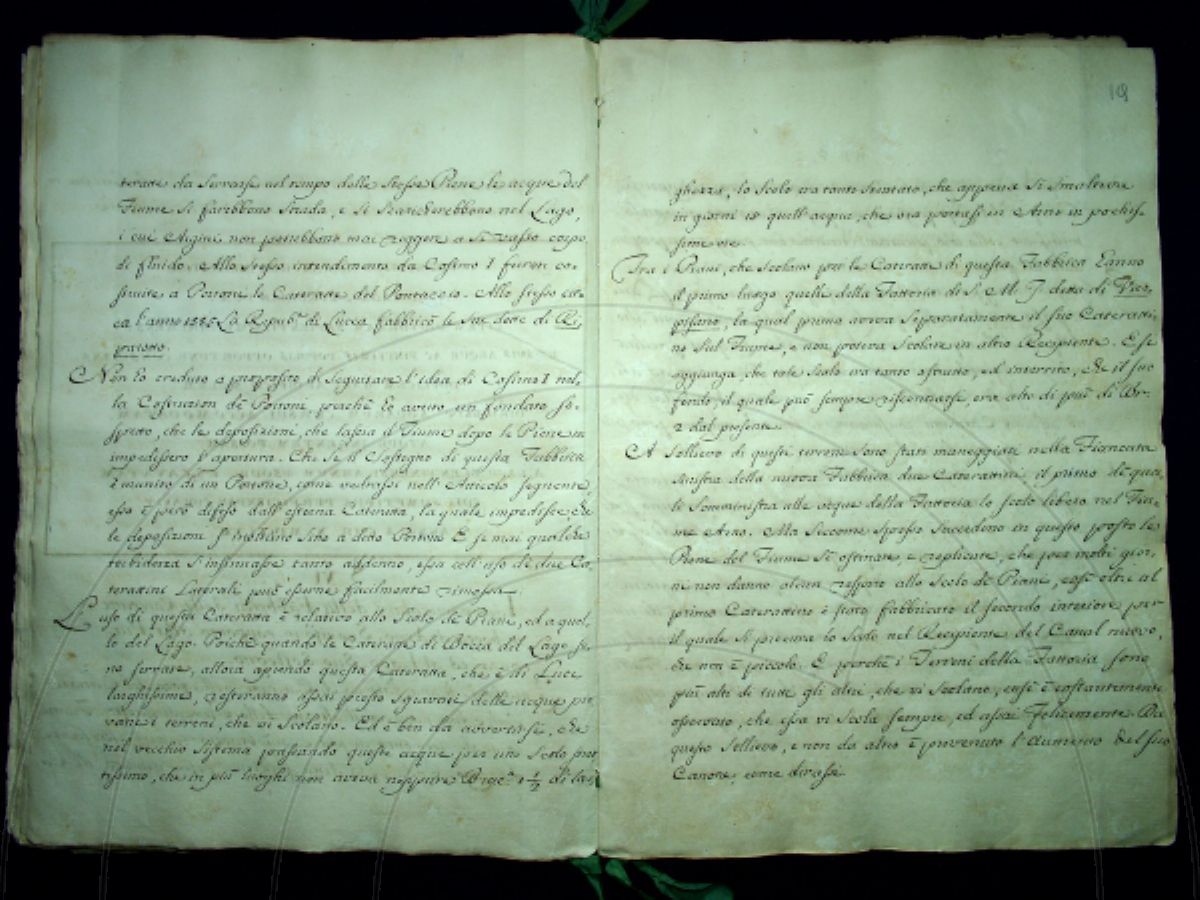 teratte da serrarsi nel tempo delle stesse Piene le acque del
Fiume si farebbono strada, e si scaricherebbono nel Lago,
i cui Argini non potrebbono mai reggere a si vasto corpo
di fluido. Allo stesso intendimento da Cosimo I furon co-
struite a Portone le Cateratte del Pontaccio. Allo stesso
ca l'anno La Repub.ª di Lucca fabbricò le sue dette di Ri-
paiotto.
Non ho creduto a proposito di seguitare l'idea di Cosimo I nel-
la Costruzion de Portoni, perchè ho avuto un fondato so-
spetto, che le deposizioni, che lascia il Fiume dopo le Piene ne
impedissero l'apertura. Che se il Sostegno di questa Fabbrica
è munito di un Portone, come vedrassi nell'Articolo seguente,
esso è però difeso dall'esterna Cateratta, la quale impedisce che
le deposizioni s'inoltrino sino a detto Portone. E se mai qualche
torbidenza s'insinuasse tanto addentro, essa coll'uso di due Ca-
terattini Laterali può esserne facilmente rimossa.
L'uso di questa Cateratta è relativo allo Scolo de Piani, ed a quel-
lo del Lago. Poichè quando le Cateratte di Bocca del Lago so-
no serrate, allora aprendo questa Cateratta, che è di Luce
larghissime, resteranno assai presto sgravati delle acque pio-
vane i terreni, che vi scolano. Ed è ben da avvertirsi, che
nel vecchio sistema passando queste acque per uno Scolo stret-
tissimo, che in più luoghi non aveva neppure Brac.ª 1 1/2 di lar-
ghezza, lo Scolo era tanto stentato, che appena si smaltiva
in giorni quell'acqua, che ora portasi in Arno in pochis-
sime ore.
Tra i Piani, che scolano per le Cateratte di questa Fabbrica hanno
il primo luogo quelli della Fattoria di S. M. I. detta di Vico-
pisano, la qual prima aveva separatamente il suo Caterratti-
no sul Fiume, e non poteva scolare in altro Recipiente. E si
aggiunga, che tale Scolo era tanto angusto, ed interrito, che il suo
fondo, il quale può sempre riscontrarsi, era alto di più di Br.ª
2 dal presente.
A sollievo di questi terreni sono stati maneggiati nella Fiancata
sinistra della nuova Fabbrica due Caterattini, il primo de qua-
li somministra alle acque della Fattoria lo scolo libero nel Fiu-
me Arno. Ma siccome spesso succedono in questo posto le
Piene del Fiume sì ostinate, e replicate, che per molti gior-
ni non danno alcun respiro allo Scolo de Piani, così oltre al
primo Caterattino è stato fabbricato il secondo interiore per
il quale si procura lo Scolo nel Recipiente del Canal nuovo,
che non è piccolo. E perchè i Terreni della Fattoria sono
più alti di tutti gli altri, che vi scolano, così è costantemente
osservato, che essa vi scola sempre, ed assai felicemente. Da
questo Sollievo, e non da altro è provenuto l'Aumento del suo
Canone, come dirassi.